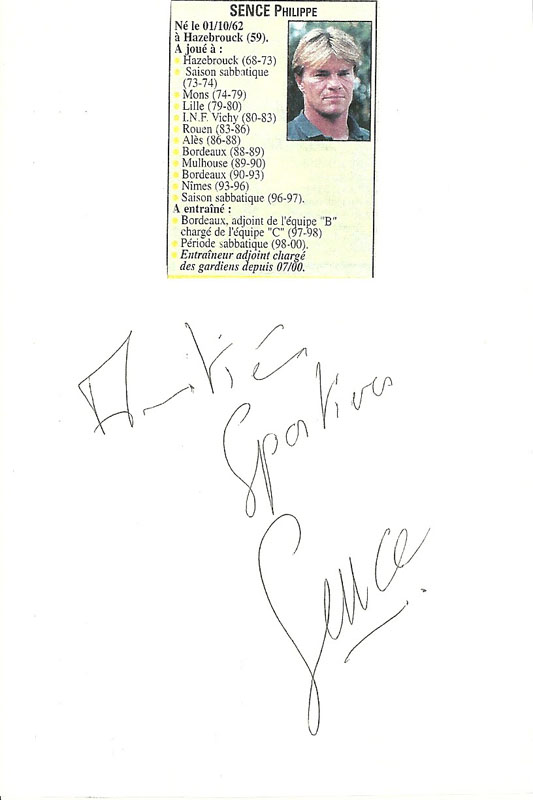 SENCE PHILIPPE
Né le 01/10/62
à Hazebrouck (59).
A joué à :
Hazebrouck (68-73)
Saison sabbatique
(73-74)
Mons (74-79)
Lille (79-80)
I.N.F. Vichy (80-83)
Rouen (83-86)
Alès (86-88)
Bordeaux (88-89)
Mulhouse (89-90)
Bordeaux (90-93)
Nîmes (93-96)
Saison sabbatique (96-97).
A entraîné :
Bordeaux, adjoint de l'équipe "B"
chargé de l'équipe "C" (97-98)
Période sabbatique (98-00).
Entraîneur adjoint chargé
des gardiens depuis 07/00.
Amitiés
Sportives
Sence